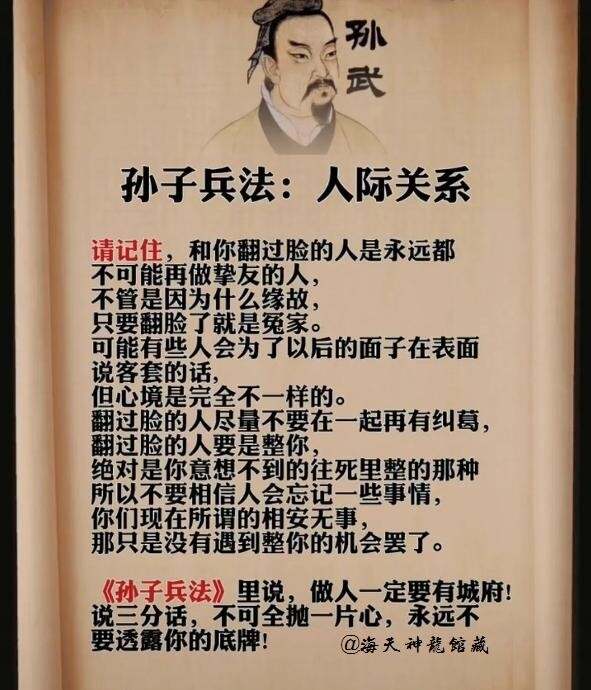 孙武
孙子兵法：人际关系
请记住，和你翻过脸的人是永远都
不可能再做挚友的人，
不管是因为什么缘故，
只要翻脸了就是冤家。
可能有些人会为了以后的面子在表面
说客套的话,
但心境是完全不一样的。
翻过脸的人尽量不要在一起再有纠葛，
翻过脸的人要是整你，
绝对是你意想不到的往死里整的那种
所以不要相信人会忘记一些事情，
你们现在所谓的相安无事，
那只是没有遇到整你的机会罢了。
《孙子兵法》里说，做人一定要有城府!
说三分话，不可全抛一片心，永远不
要透露你的底牌!
@海天神龍館藏